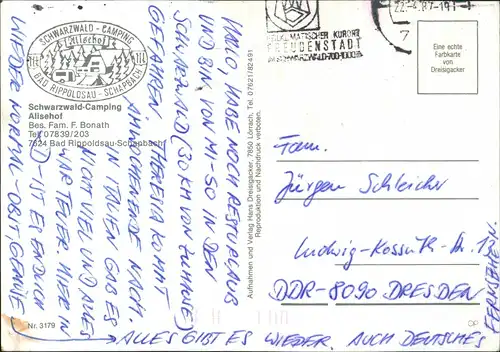 SCHWARZWALD - CAMPING
Alisehof
BAD RIPPOLDSAU - SCHAPBACH
Schwarzwald-Camping
Alisehof
Bes. Fam. F. Bonath
Tel 07839/203
7624 Bad Rippoldsau-Schapbach
Nr. 3179
HALLO, HABE NOCH RESTURLAUB
UND BIN VON MI-SO IN DEN
SCHWARZWALD (30 KM VON ZUHAUSE)
GEFAHREN. THERESIA KOMMT
AM WOCHENENDE NACH.
IN ITALIEN GAB ES
NICHT VIEL UND ALLES
WAR TEUER. HIER IN
D - IST ES ENDLICH
WIEDER NORMAL - OBST, GEMÜSE
ALLES GIBT ES WIEDER. AUCH DEUTSCHES
Aufnahmen und Verlag Hans Dreisigacker, 7850 Lörrach, Tel. 07621/82491
Reproduktion und Nachdruck verboten.
HEILKLIMATISCHER KURORT
FREUDENSTADT
IM SCHWARZWALD
7
Eine echte
Farbkarte
von
Dreisigacker
Fam.
Jürgen Schleicher
Ludwig-Kossuth-Str. 13
DDR-8090 DRESDEN